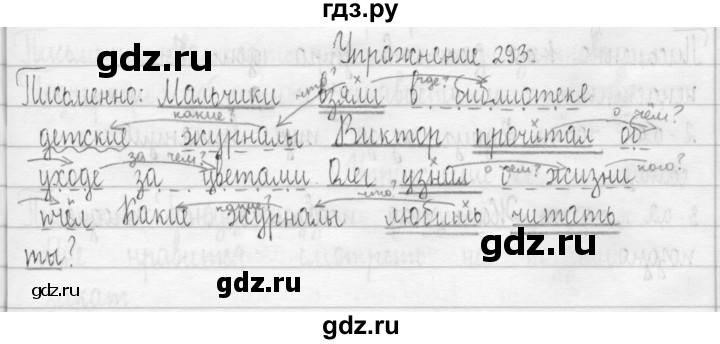 гдз.ру
Упражнение 293.
Письменно: Мальчики взяли в библиотеке
что? где?
какие? о чём?
детские журналы Виктор прочитал об
за чем? о чём? кого?
уходе за цветами Олег узнал о жизни
какие? что?
пчёл Какие журналы любишь читать
ты?
gdz.ru
gdz.ru
gdz.ru
gdz.ru
gdz.ru
gdz.ru
gdz.ru
gdz.ru